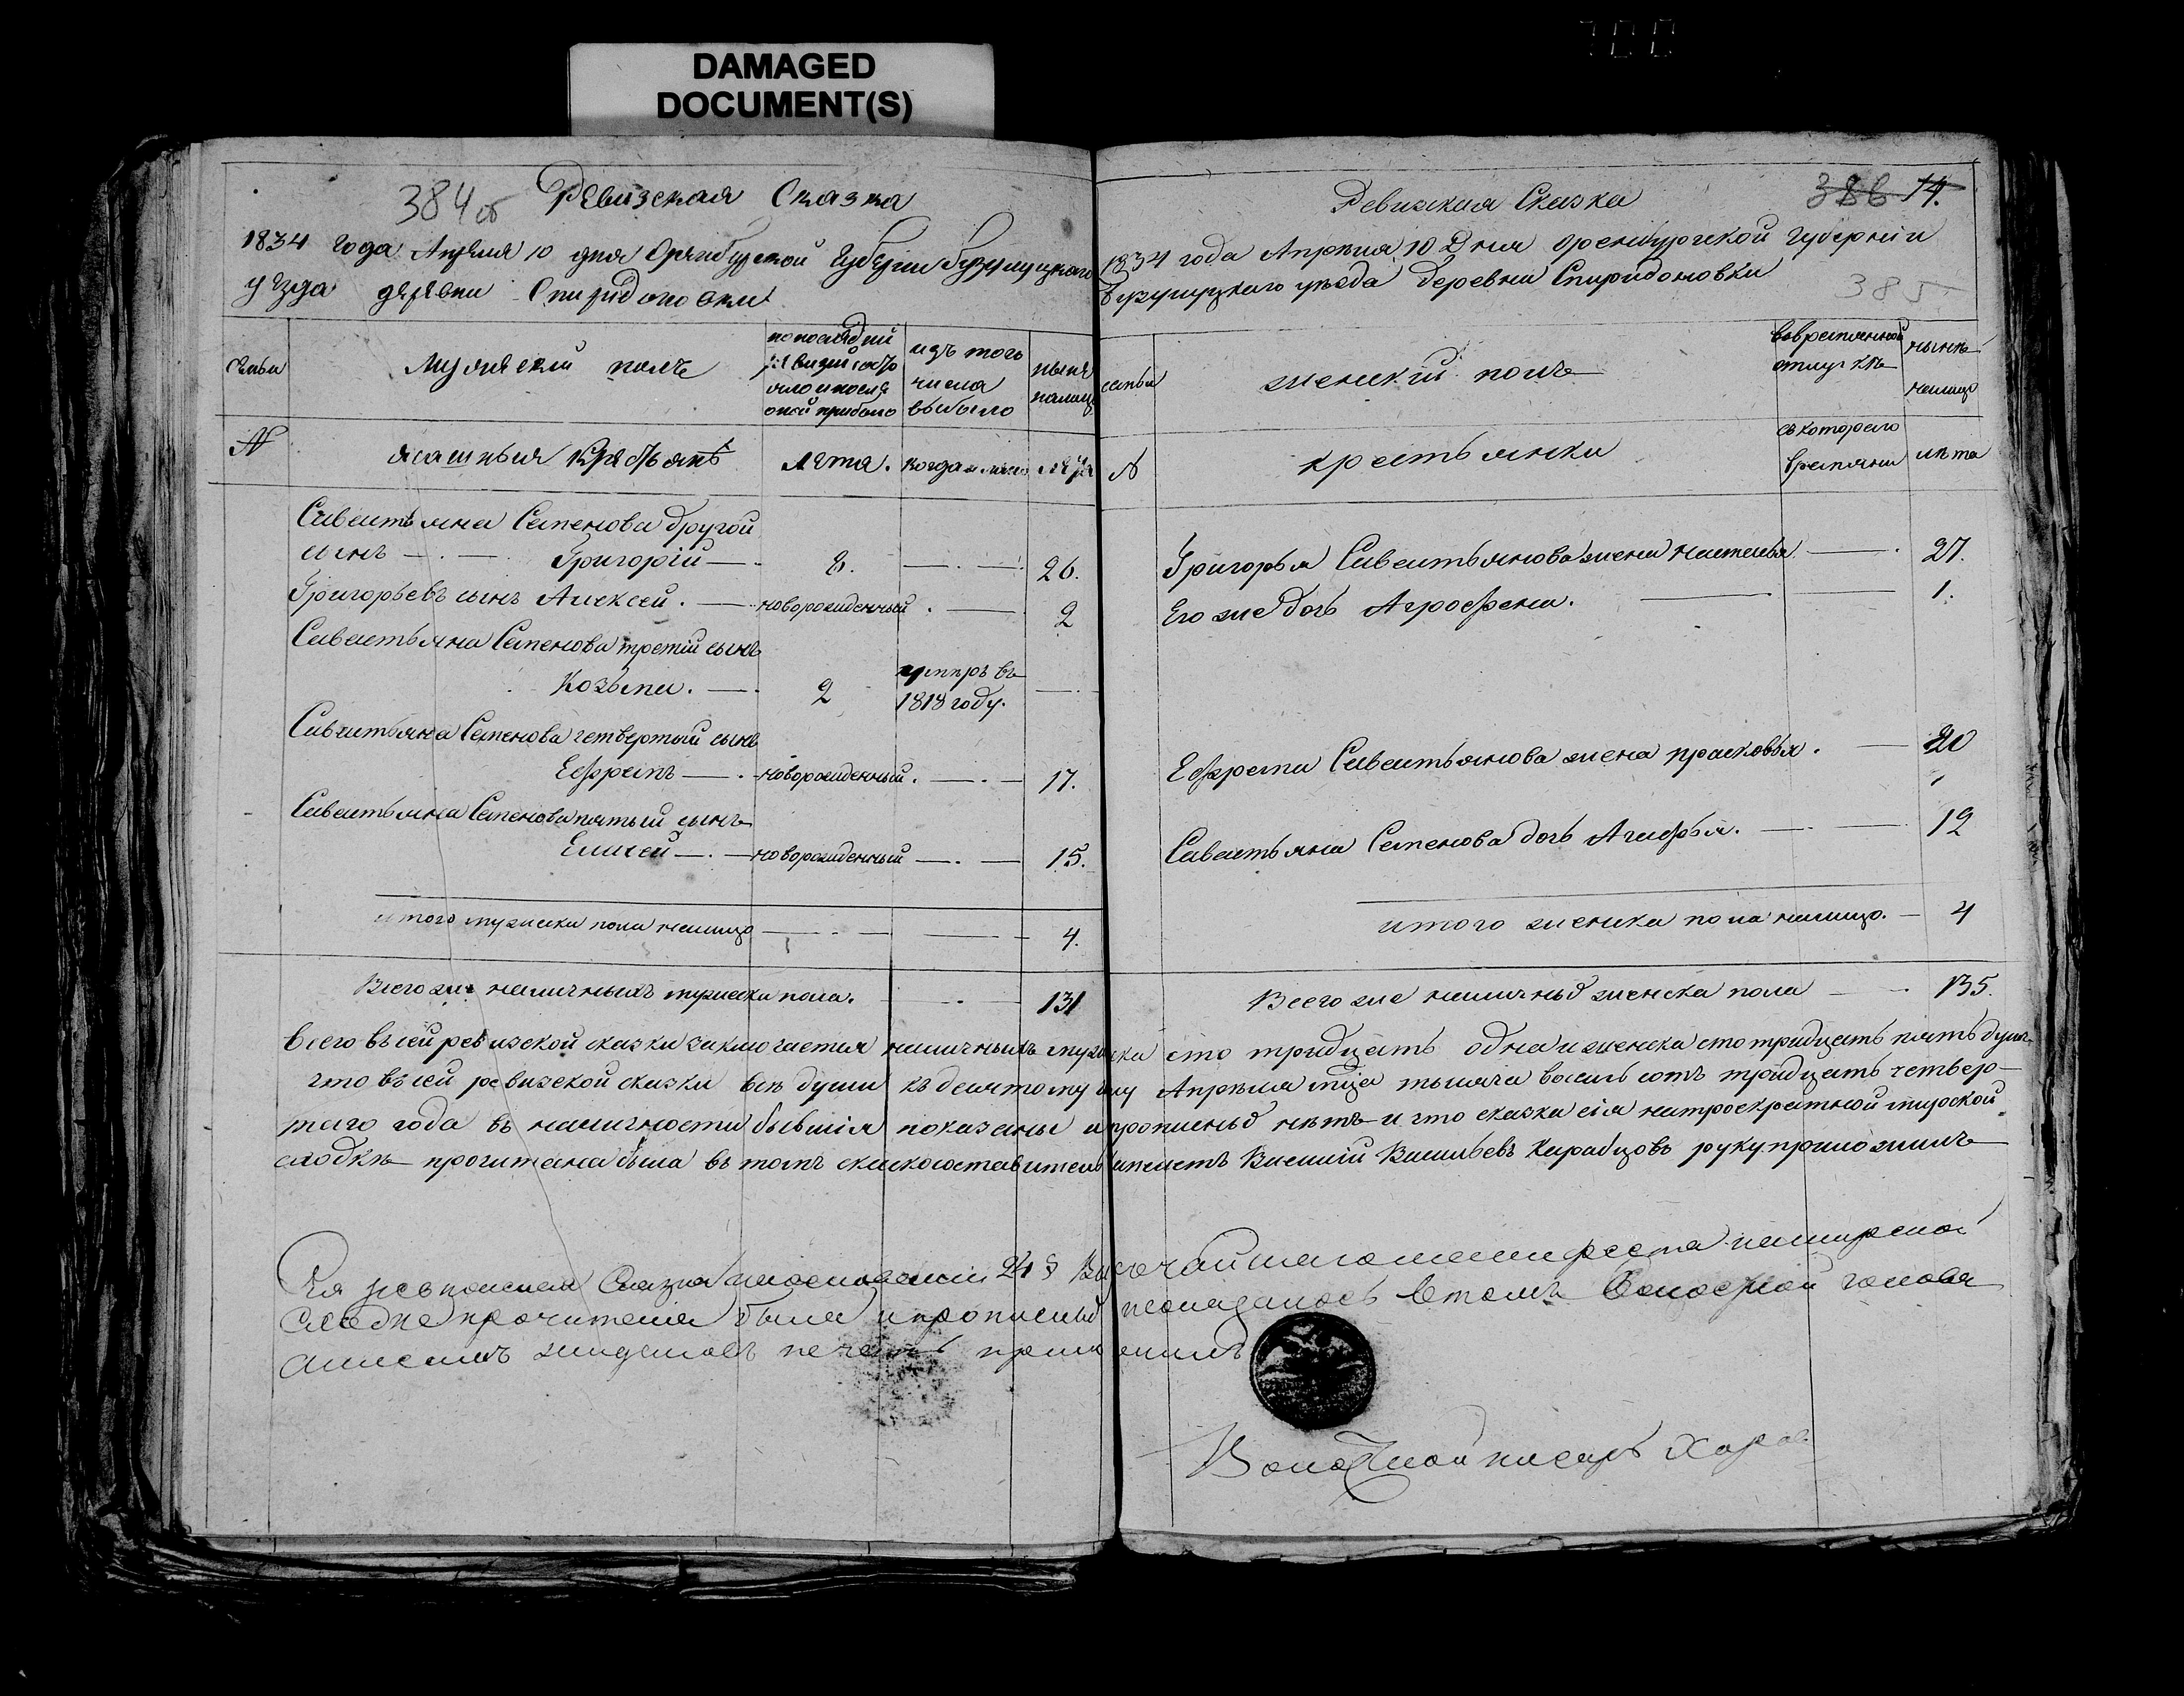 DAMAGED
DOCUMENT(S)
384об Ревизская Сказка
1834 года Апреля 10 дня Оренбургской Губернии Бузулуцкаго
уезда деревни Спиридоновки
семьи
Мужеский полъ
по последней ревизии состояло и после оной прибыло
изъ того числа выбыло
ныне налицо
№
ясашныя крестьяне
лета. когда именно лета
Савастьяна Семенова другой
сынъ — Григорій — 8. — 26.
Григорьевъ сынъ Алексей. — новорожденный. — 2
Савастьяна Семенова третій сынъ
Козьма. — 2 умиръ въ 1818 году. —
Савастьяна Семенова четвертый сынъ
Ефремъ — новорожденный. — 17.
Савастьяна Семенова пятый сынъ
Елисей — новорожденный — 15.
итого мужеска пола налицо — 4.
Всего же наличныхъ мужеска пола. — 131
386 14.
Ревизская Сказка
1834 года Апреля 10 Дня Оренбургской Губерніи
Бузулуцкаго уезда деревни Спиридоновки
385
семьи
женскій полъ
во временной отлучке
ныне налицо
№
крестьянки
съ котораго времяни
лета
Григорья Савастьянова жена Наталья — 27.
Его же дочь Агрофена. — 1.
Ефрема Савастьянова жена прасковья. — 20
Савастьяна Семенова дочь Агафья. — 12
итого женска пола налицо. — 4
Всего же наличныхъ женска пола — 135.
Всего въ сей ревизской сказки заключается наличныхъ мужеска сто тридцать одна и женска сто тридцать пять душъ
что въ сей ревизской сказки все души къ десятому дню Апреля мца тысяча восемь сотъ тридцать четвер-
таго года въ наличности бывшія показаны и прописныхъ нетъ и что сказка сія на троекратной мирской
сходке прочитана была въ томъ Василий Васильевъ руку приложилъ
Сказка 24 § Высочайшаго манифеста на мирской
сходке прочитана была и прописныхъ неоказалось в томъ Волосной голова
печать приложилъ
Волосной писарь